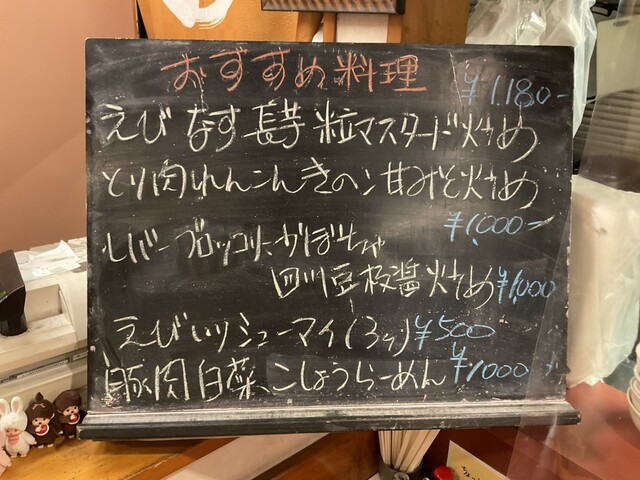 おすすめ料理
¥1,180-
えび なす 長芋 粒マスタード炒め
とり肉れんこんきのこ甘みそ炒め
¥1,000-
レバーブロッコリーかぼちゃ
四川豆板醤炒め ¥1,000
えび入りシューマイ(3ヶ) ¥500
豚肉白菜こしょうらーめん ¥1000